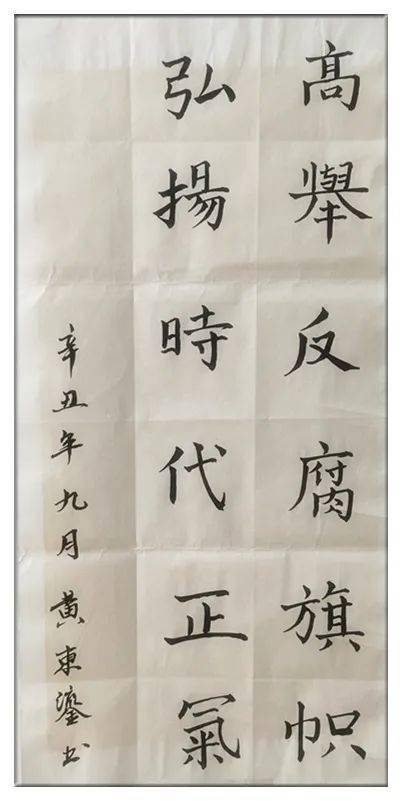 髙舉反腐旗帜
弘揚時代正氣
辛丑年九月黄東鎏书